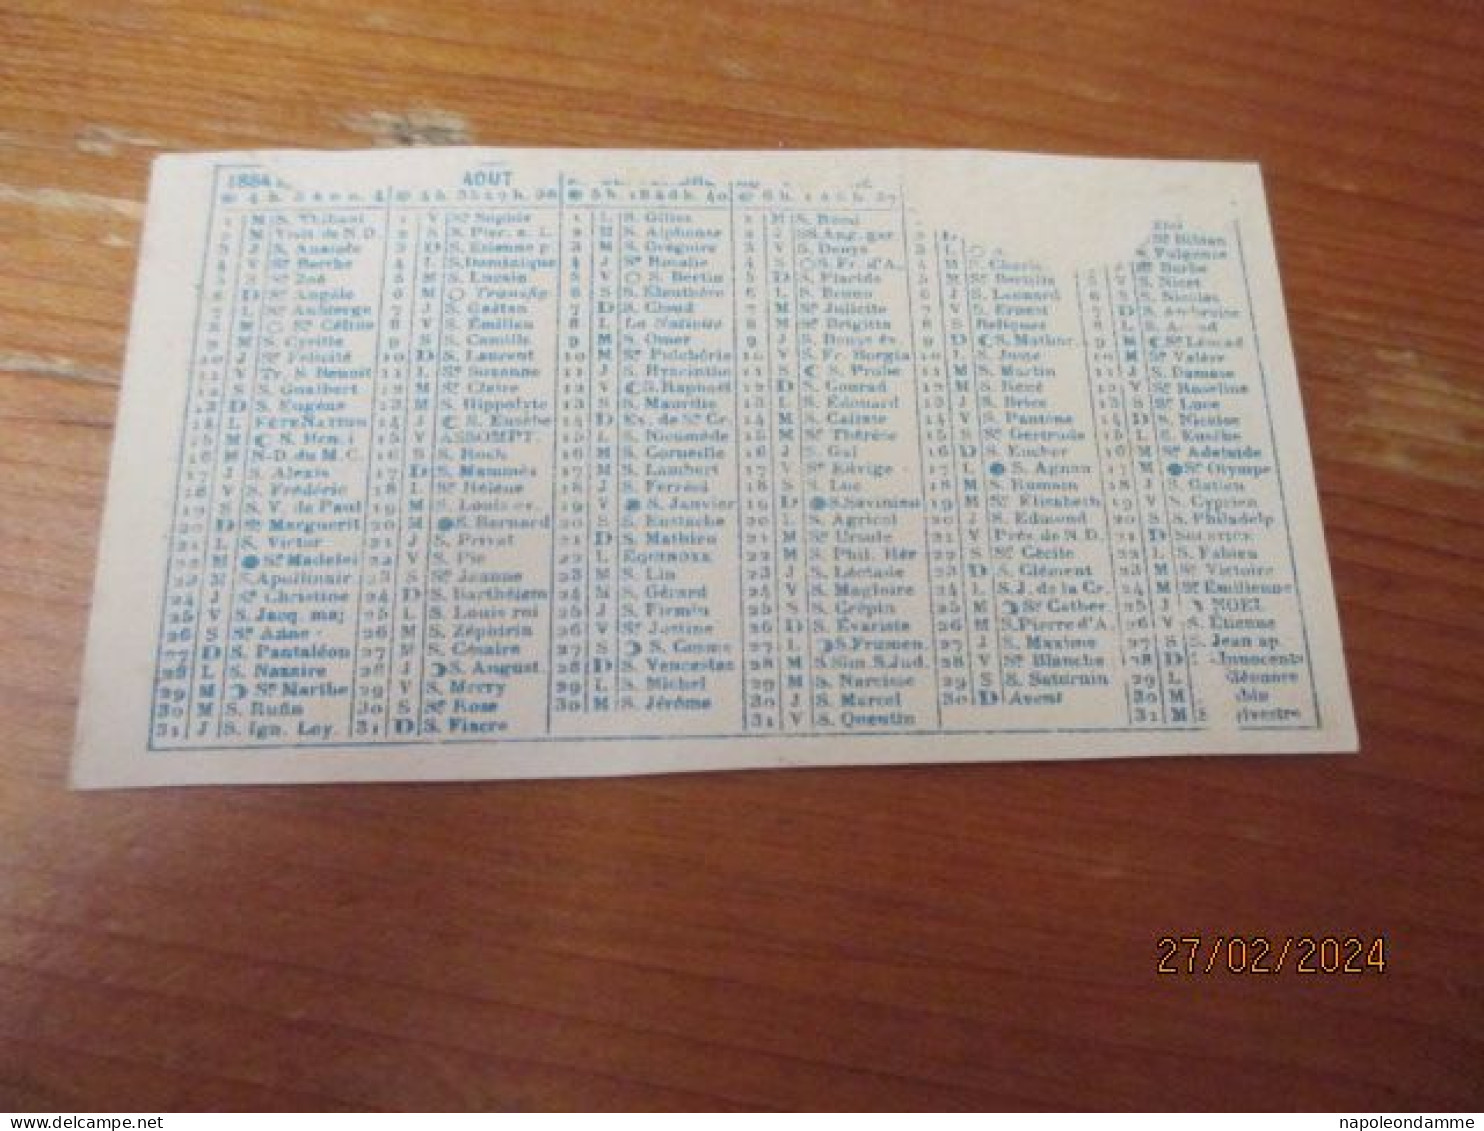 1884
AOUT
1 M S. Thibaut
M Visit de N. D.
3 J S. Anatole
4 V Ste Berthe
S Ste Zoé
6 D Ste Angèle
7 L Ste Aubierge
M Ste Céline
9 M S. Cyrille
10 J Ste Félicité
11 V Tr. S. Benoit
12 S S. Gualbert
13 D S. Eugène
14 L FÊTE NATION
15 M S. Henri
16 M N-D. du M. C.
17 J S. Alexis
18 V S. Frédéric
19 S S. V. de Paul
20 D Ste Marguerit
21 L S. Victor
22 M Ste Madelei
23 M S. Apollinair
24 J Ste Christine
25 V S. Jacq. maj
26 S Ste Anne
27 D S. Pantaléon
28 L S. Nazaire
29 M Ste Marthe
30 M S. Rufin
31 J S. Ign. Loy.
1 V Ste Sophie
2 S S. Pier. è. L.
3 D S. Etienne p.
4 L S. Dominique
5 M S. Lucain
6 M Transfig
7 J S. Gaëtan
8 V S. Émilien
9 S S. Camille
10 D S. Laurent
11 L Ste Suzanne
12 M Ste Claire
13 M S. Hippolyte
14 J S. Eusèbe
15 V ASSOMPT.
16 S S. Roch
17 D S. Mammès
18 L Ste Hélène
19 M S. Louis ev.
20 M S. Bernard
21 J S. Privat
22 V S. Pie
23 S Ste Jeanne
24 D S. Barthélem
25 L S. Louis roi
26 M S. Zéphirin
27 M S. Césaire
28 J S. August
29 V S. Merry
30 S Ste Rose
31 D S. Fiacre
1 L S. Gilles
2 M S. Alphonse
3 M S. Grégoire
4 J Ste Rosalie
5 V S. Bertin
6 S S. Eleuthère
7 D S. Cloud
8 L La Nativité
9 M S. Omer
10 M Ste Pulchérie
11 J S. Hyacinthe
12 V S. Raphaël
13 S S. Maurille
14 D Ex. de Ste Cr.
15 L S. Nicomède
16 M S. Corneille
17 M S. Lambert
18 J S. Ferréol
19 V S. Janvier
20 S S. Eustache
21 D S. Mathieu
22 L EQUINOXE
23 M S. Lin
24 M S. Gérard
25 J S. Firmin
26 V Ste Justine
27 S S. Cosme
28 D S. Venceslas
29 L S. Michel
30 M S. Jérôme
1 M S. Remi
2 J SS. Ang. gar
3 V S. Denys
4 S S. Fr. d'A.
5 D S. Placide
6 L S. Bruno
7 M Ste Julie
8 M Ste Brigitte
9 J S. Denys év.
10 V S. Fr. Borgia
11 S S. Probe
12 D S. Conrad
13 L S. Édouard
14 M S. Calixte
15 M Ste Thérèse
16 J S. Gal
17 V Ste Edvige
18 S S. Luc
19 D S. Savinien
20 L S. Agricol
21 M Ste Ursule
22 M S. Phil. Hér
23 J S. Léotade
24 V S. Magloire
25 S S. Crépin
26 D S. Évariste
27 L S. Frumen
28 M S. Sim. S. Jud.
29 M S. Narcisse
30 J S. Marcel
31 V S. Quentin
4 M S. Charle
5 M Ste Bertille
6 J S. Léonard
7 V S. Ernest
8 S Reliques
9 D S. Mathur.
10 L S. Juste
11 M S. Martin
12 M S. René
13 J S. Brice
14 V S. Pantène
15 S Ste Gertrude
16 D S. Eucher
17 L S. Agnan
18 M S. Romain
19 M Ste Élisabeth
20 J S. Edmond
21 V Prés. de N. D.
22 S Ste Cécile
23 D S. Clément
24 L S. J. de la Cr.
25 M Ste Cather.
26 M S. Pierre d'A.
27 J S. Maxime
28 V Ste Blanche
29 S S. Saturnin
30 D Avent
Eloi
Ste Bibian
Fulgence
Ste Barbe
5 V S. Nicet
6 S S. Nicolas
7 D S. Ambroise
8 L S.
9 M Ste Léocad
10 M Ste Valère
11 J S. Damase
12 V Ste Roseline
13 S Ste Luce
14 D S. Nicaise
15 L S. Eusèbe
16 M Ste Adélaïde
17 M Ste Olympe
18 J S. Gatien
19 V S. Cyprien
20 S S. Philadelp.
21 D SOLSTICE
22 L S. Fabien
23 M Ste Victoire
24 M Ste Emilienne
25 J NOEL
26 V S. Étienne
27 S S. Jean ap.
28 D Innocents
29 L Eléonore
30 M
31 M S. ylvestre
27/02/2024
napoleondamme